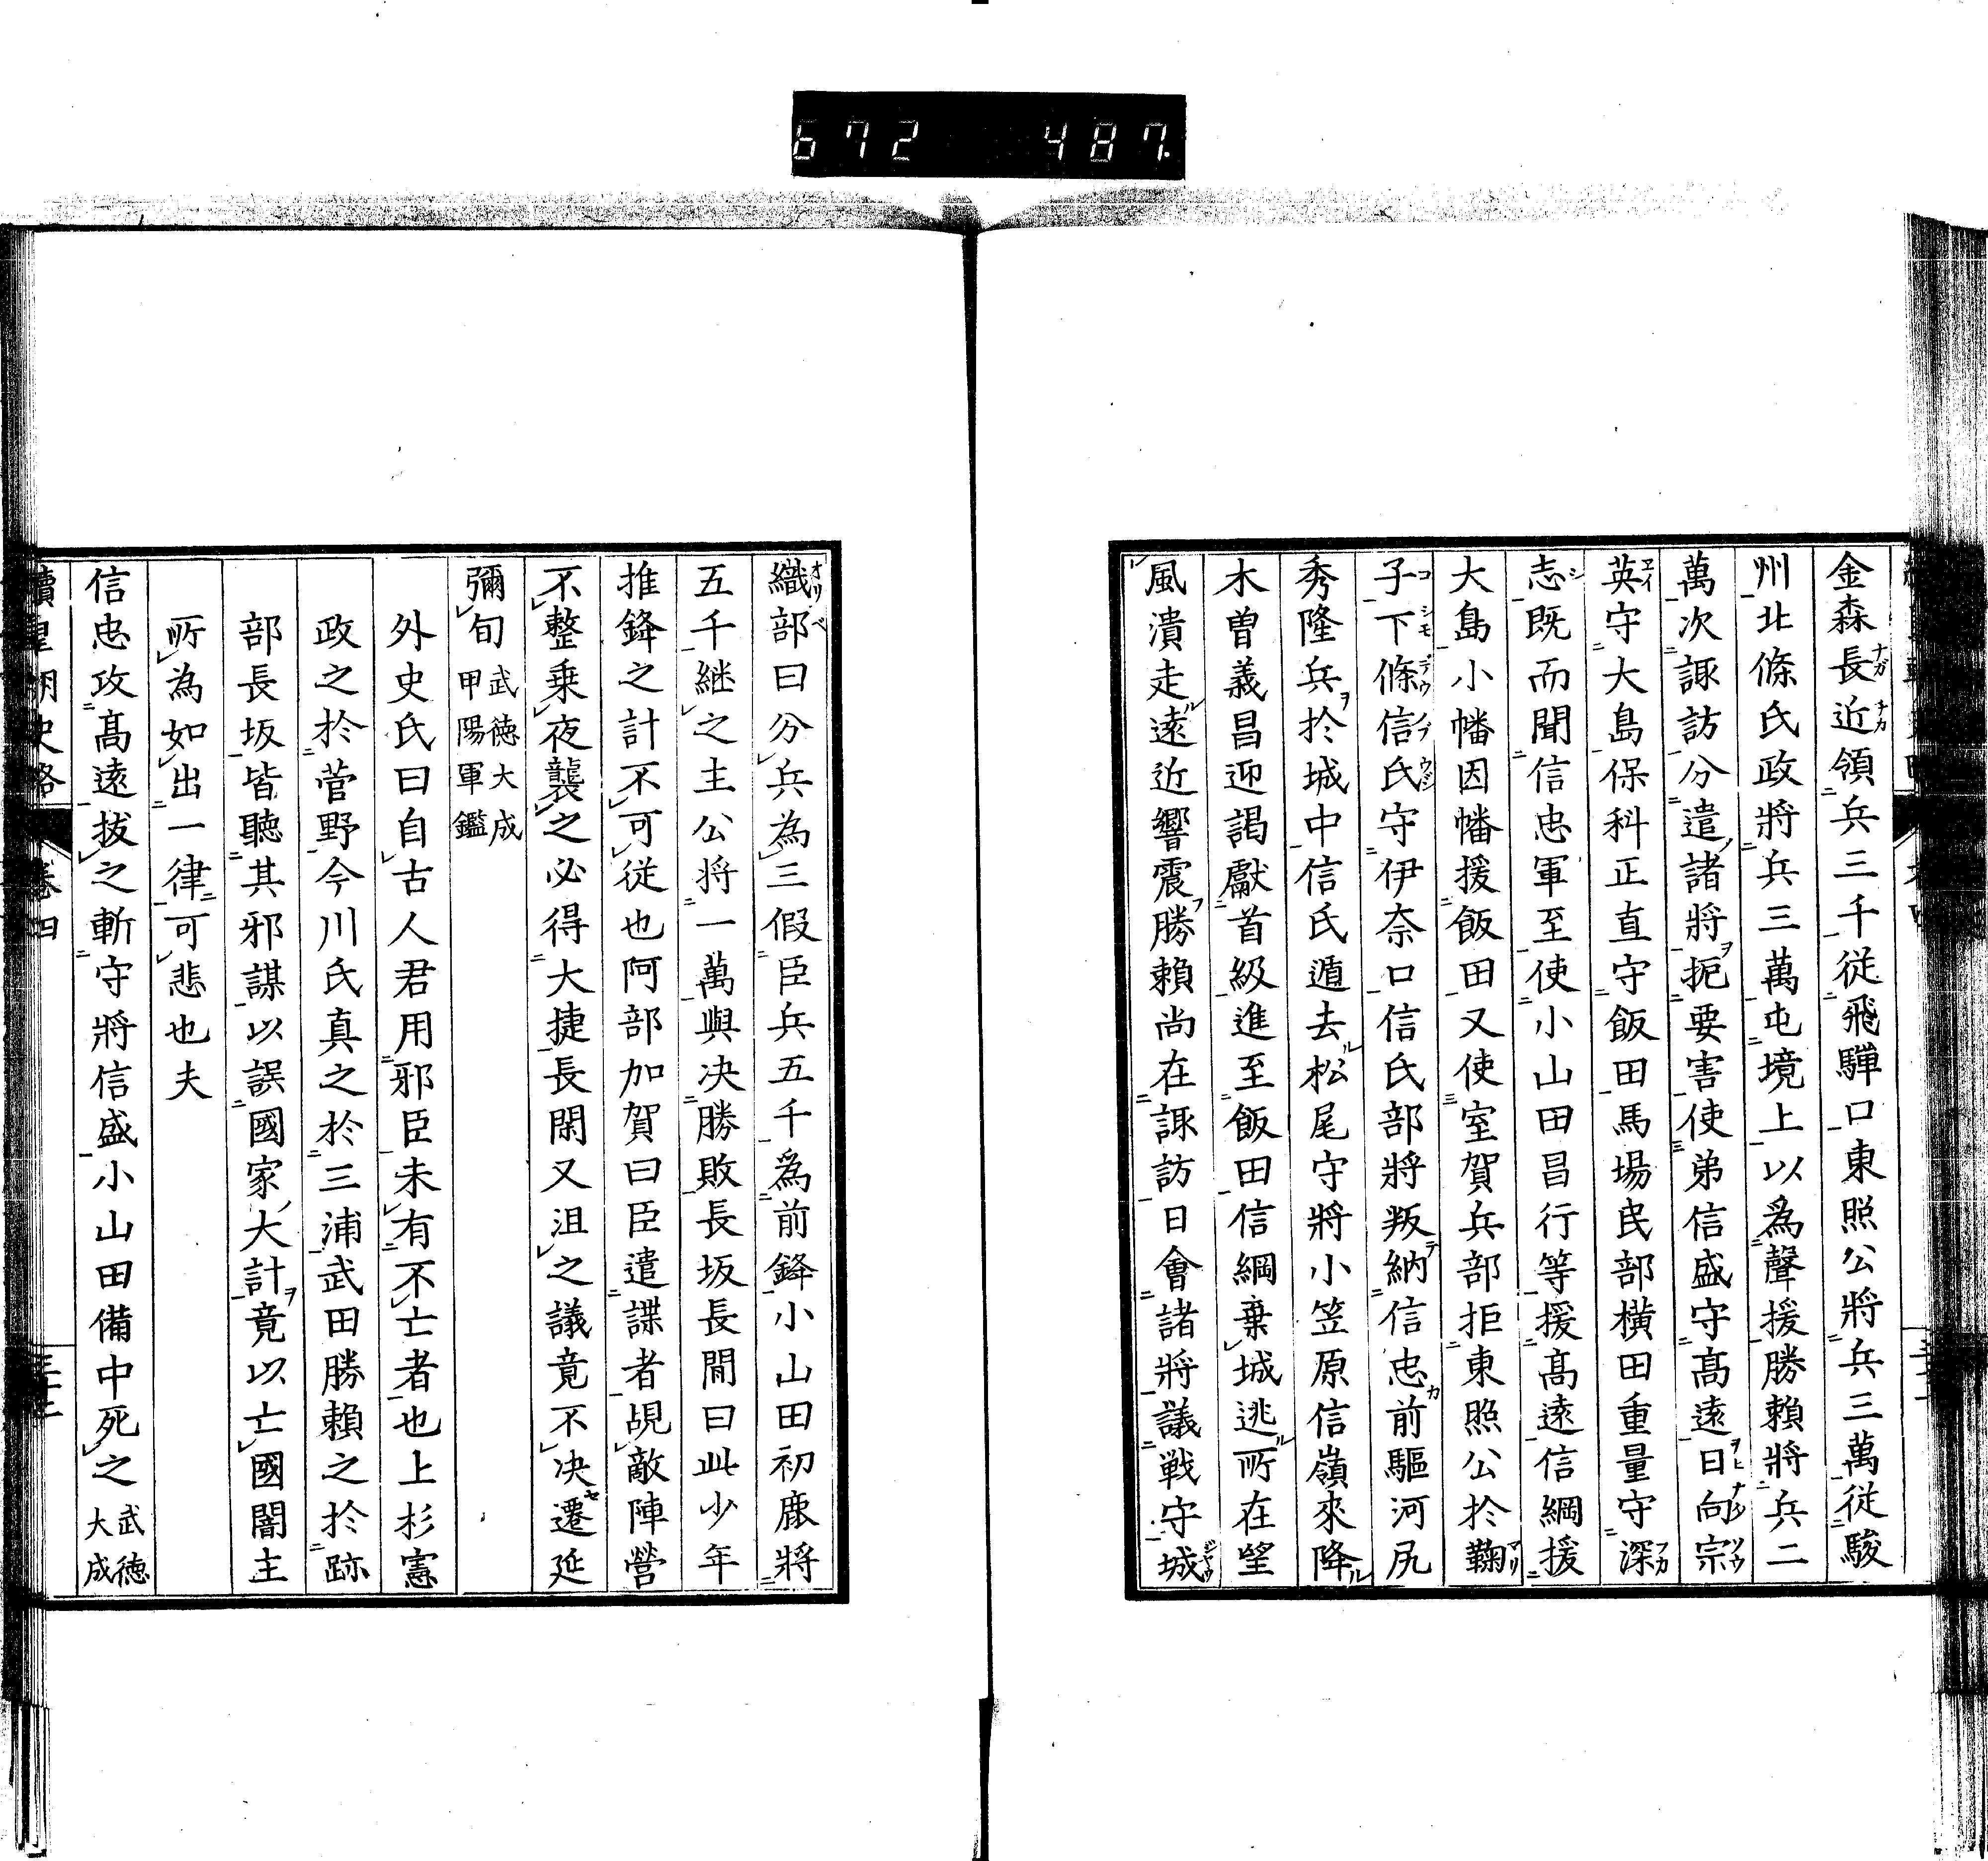 672 487
金森長近領兵三千従飛驒口東照公將兵三萬従駿
州北條氏政將兵三萬屯境上以爲聲援勝賴將兵二
萬次諏訪分遣諸將扼要害使弟信盛守髙遠日向宗
英守大島保科正直守飯田馬場民部横田重量守深
志既而聞信忠軍至使小山田昌行等援髙遠信綱援
大島小幡因幡援飯田又使室賀兵部拒東照公於鞠
子下條信氏守伊奈口信氏部將叛納信忠前驅河尻
秀隆兵於城中信氏遁去松尾守將小笠原信嶺來降
木曽義昌迎謁獻首級進至飯田信綱棄城逃所在望
風潰走遠近響震勝賴尚在諏訪日會諸將議戦守城
織部曰分兵為三假臣兵五千爲前鋒小山田初鹿將
五千継之主公將一萬與决勝敗長坂長閒曰此少年
推鋒之計不可従也阿部加賀曰臣遣諜者覘敵陣營
不整乗夜襲之必得大捷長閑又沮之議竟不决遷延
彌旬 武徳大成 甲陽軍鑑
外史氏曰自古人君用邪臣未有不亡者也上杉憲
政之於菅野今川氏真之於三浦武田勝賴之於跡
部長坂皆聽其邪謀以誤國家大計竟以亡國闇主
所為如出一律可悲也夫
信忠攻髙遠拔之斬守將信盛小山田備中死之 武徳大成
續皇朝史略 卷四